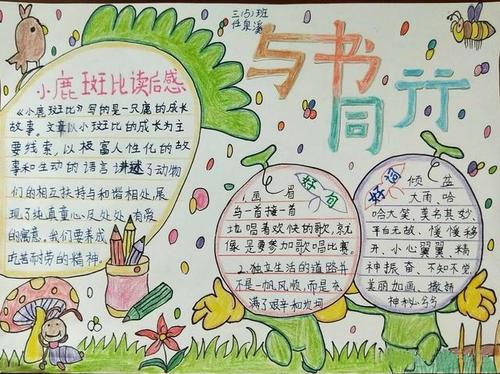 三(5)班
任泉溪
与书同行
小鹿班比读后感
《小鹿班比》写的是一只鹿的成长
故事。文章以小班比的成长为主
要线索，以极富人性化的故
事和生动的语言讲述了动物
们的相互扶持与和谐相处，展
现了纯真童心及处处有爱
的寓意，我们要养成
吃苦耐劳的精神。
好句
1、画眉
鸟一首接一首
地唱着欢快的歌，就
像是要参加歌唱比赛。
2、独立生活的道路并
不是一帆风顺，而是充
满了艰辛和坎坷
好词
倾盆
大雨、哈
哈大笑、莫名其妙、
平白无故、慢慢移
开、小心翼翼、精
神振奋、不知不觉、
美丽如画、撒娇
神秘兮兮